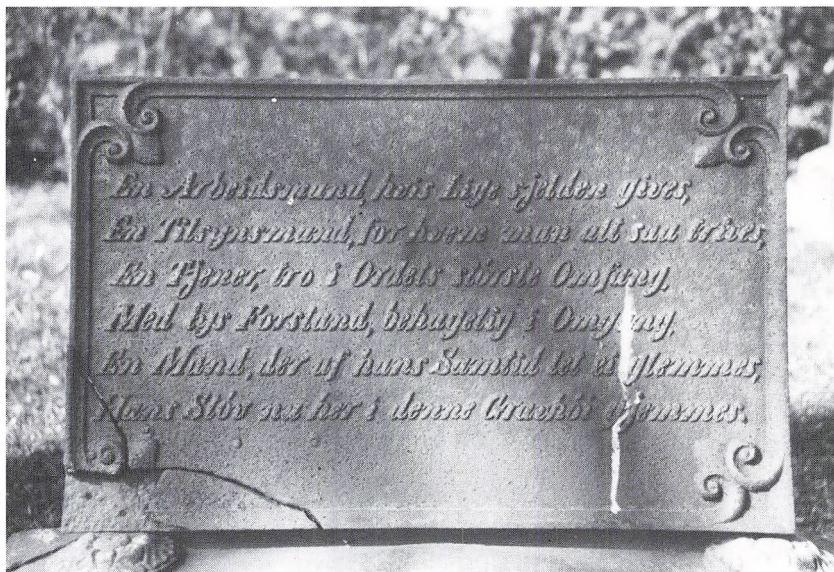 En Arbeidsmand, hvis Lige sjelden gives,
En Tilsynsmand, for hvem man alt saa trives,
En Tjener, tro i Ordets störste Omfang,
Med lys Forstand, behagelig i Omgang,
En Mand, der af hans Samtid let ei glemmes,
Hans Stöv nu her i denne Gravhöi gjemmes.